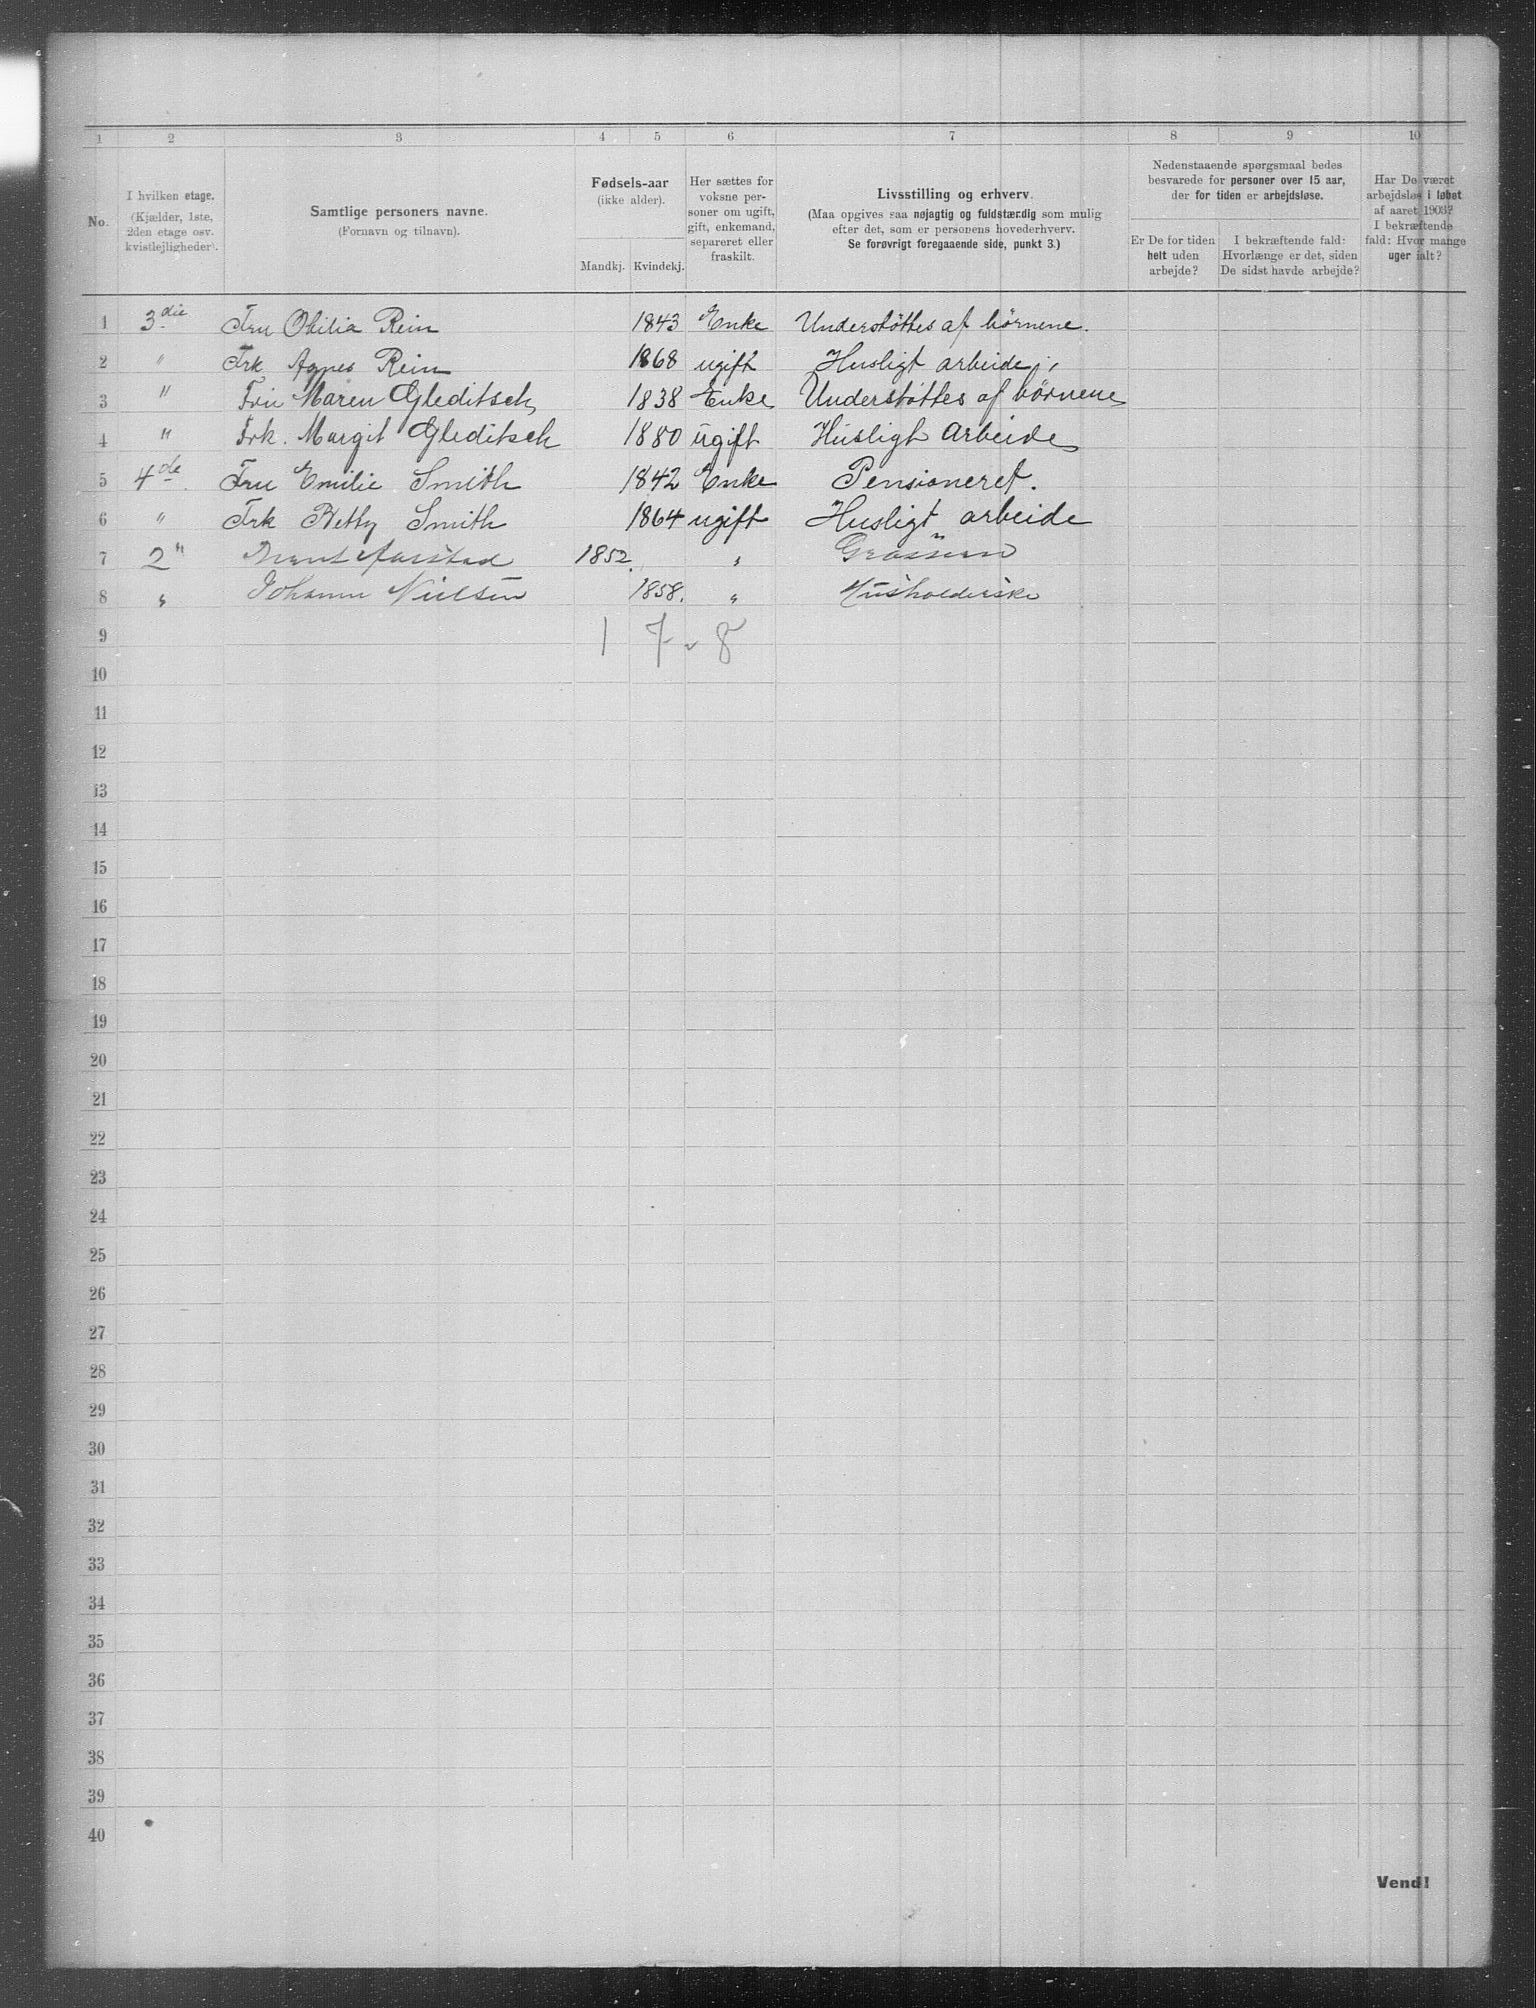 1 2 3 4 5 6 7 8 9 10
No.
I hvilken etage.
(Kjælder, 1ste,
2den etage osv.
kvistlejligheder).
Samtlige personers navne.
(Fornavn og tilnavn).
Fødsels-aar
(ikke alder).
Mandkj. Kvindekj.
Her sættes for
voksne per-
soner om ugift,
gift, enkemand,
separeret eller
fraskilt.
Livsstilling og erhverv.
(Maa opgives saa nøjagtig og fuldstændig som mulig
efter det, som er personens hovederhverv.
Se forøvrigt foregaaende side, punkt 3.)
Nedenstaaende spørgsmaal bedes
besvarede for personer over 15 aar,
der for tiden er arbejdsløse.
Er De for tiden
helt uden
arbejde?
I bekræftende fald:
Hvorlænge er det, siden
De sidst havde arbejde?
Har De været
arbejdsløs i løbet
af aaret 1903?
I bekræftende
fald: Hvor mange
uger ialt?
1 3die Fru Othilia Rein 1843 Enke Understøttes af børnene.
2 " Frk Agnes Rein 1868 ugift Husligt arbeide
3 " Fru Maren Gleditsch 1838 Enke Understøttes af børnene
4 " Frk. Margit Gleditsch 1880 ugift Husligt arbeide
5 4de Fru Emilie Smith 1842 Enke Pensioneret.
6 " Frk Betty Smith 1864 ugift Husligt arbeide
7 2" Aarstad 1852. "
8 " Johanne Nielsen 1858. " Husholderske
9 1 7 - 8
10
11
12
13
14
15
16
17
18
19
20
21
22
23
24
25
26
27
28
29
30
31
32
33
34
35
36
37
38
39
40
Vend!